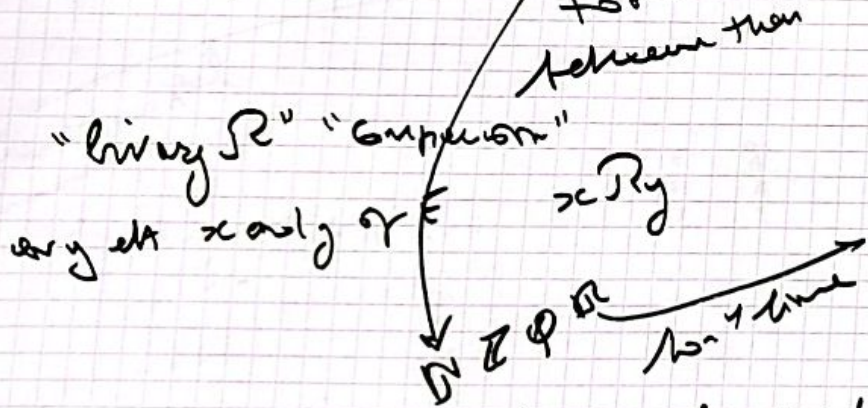 between them
"binary R" "comparison"
any elt x and y of E xRy
ℕ ℤ ℚ ℝ
line